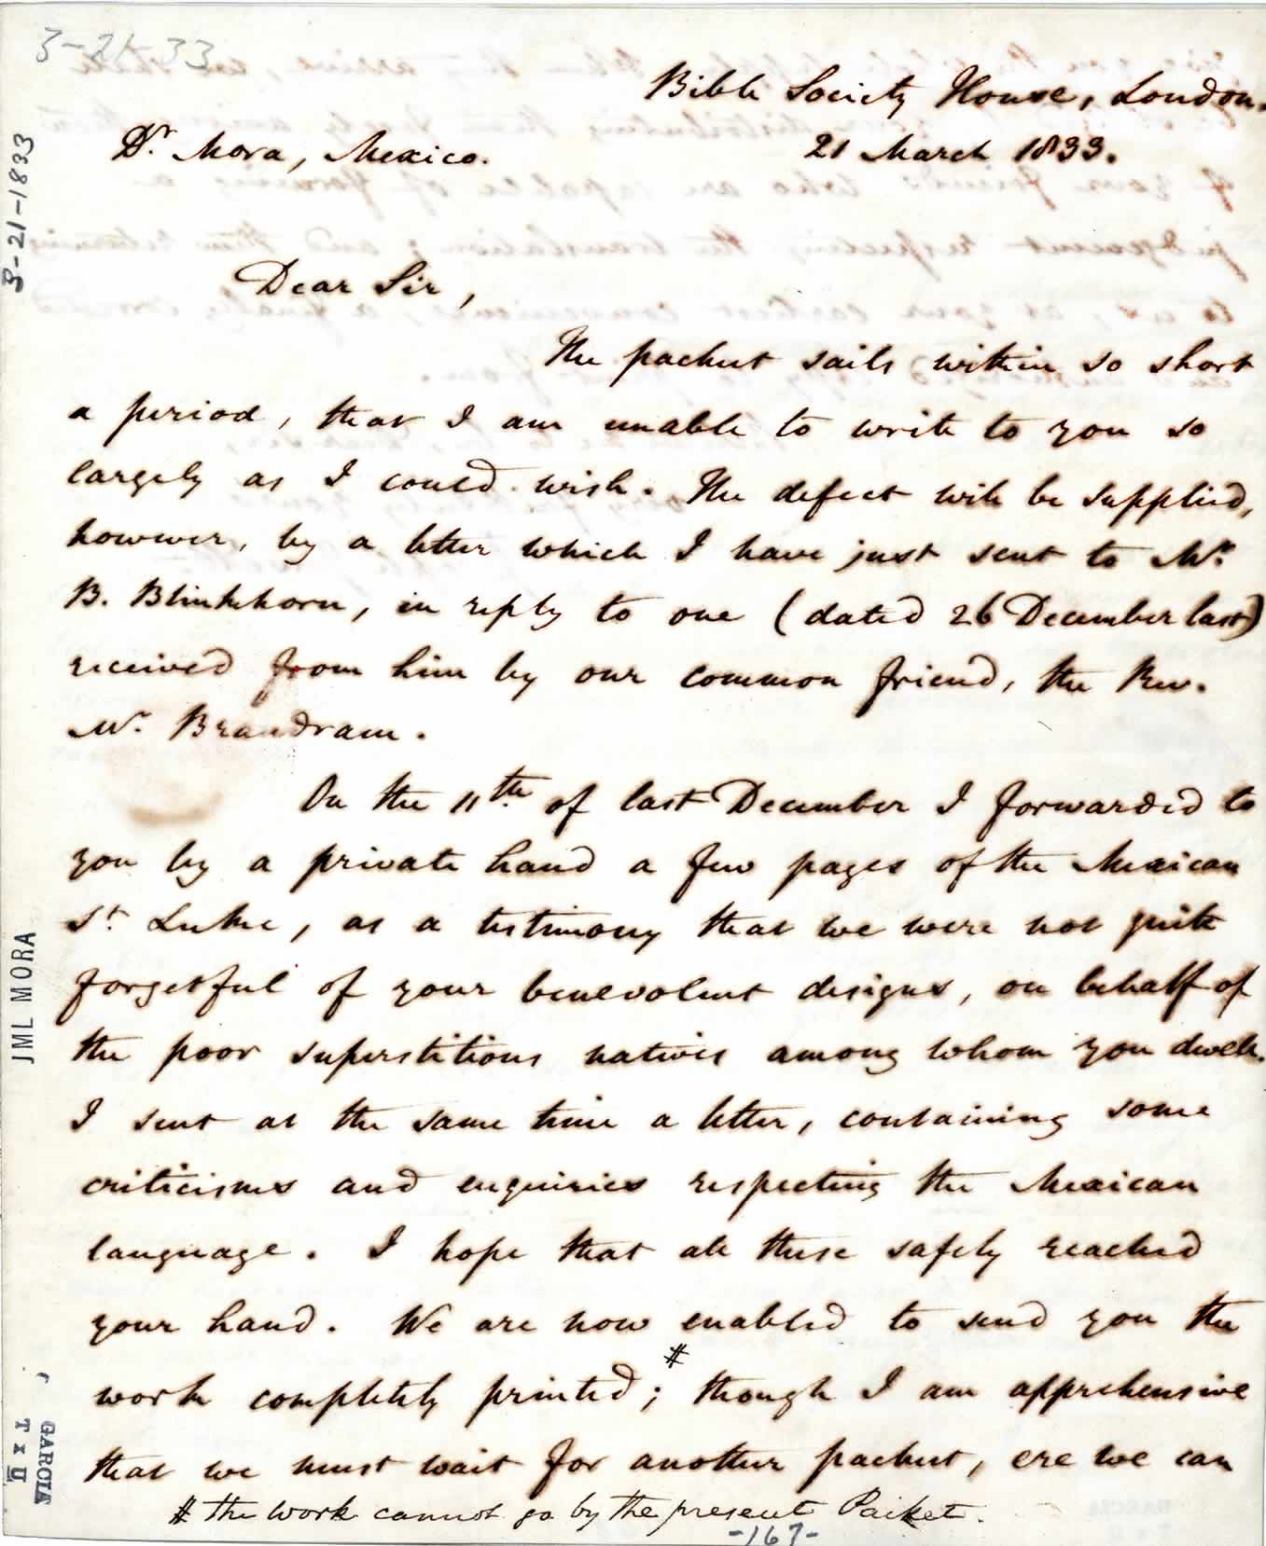 3-21-33
Bible Society House, London.
Dr. Mora, Mexico.
21 March 1833.
Dear Sir,
The packet sails within so short
a period, that I am unable to write to you so
largely as I could wish. The defect will be supplied,
however, by a letter which I have just sent to Mr.
B. Blinkhorn, in reply to one (dated 26 December last)
received from him by our common friend, the Rev.
Mr. Brandram.
On the 11th. of last December I forwarded to
you by a private hand a few pages of the Mexican
St. Luke, as a testimony that we were not quite
forgetful of your benevolent designs, on behalf of
the poor superstitious natives among whom you dwell.
I sent at the same time a letter, containing some
criticisms and enquiries respecting the Mexican
language. I hope that all these safely reached
your hand. We are now enabled to send you the
work completely printed; # though I am apprehensive
that we must wait for another packet, ere we can
# the work cannot go by the present Packet.
-167-
3-21-1833
JML MORA
GARCIA